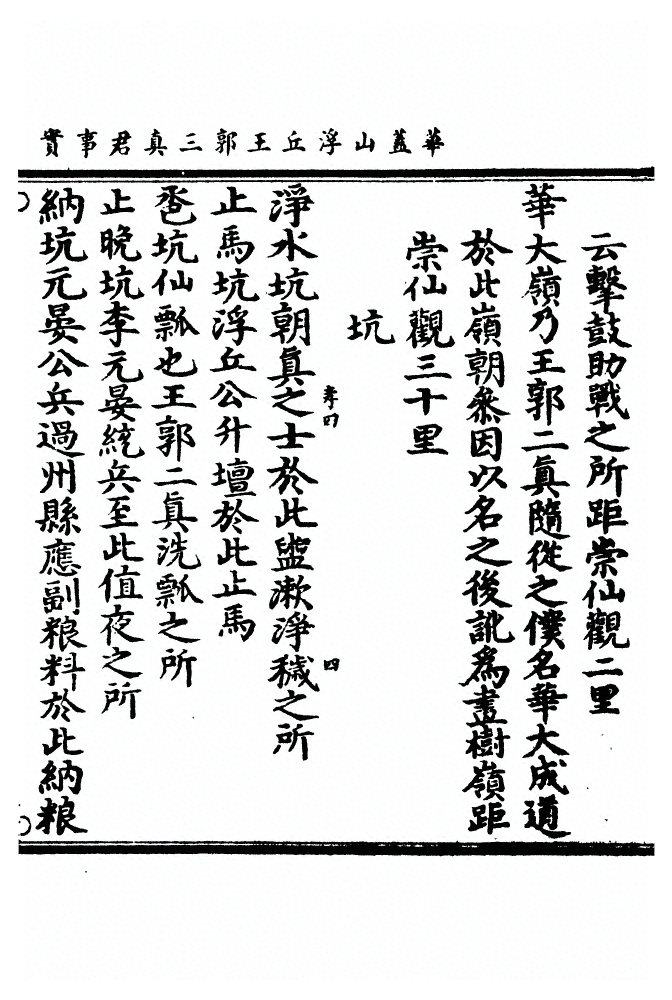 華蓋山浮丘王郭三真君事實
云擊鼓助戰之所距崇仙觀二里
華大嶺乃王郭二眞隨從之僕名華大成道
於此嶺朝叅因以名之後訛爲畫樹嶺距
崇仙觀三十里
坑
孝四
四
淨水坑朝眞之士於此盥漱淨穢之所
止馬坑浮丘公升壇於此止馬
卺坑仙瓢也王郭二眞洗瓢之所
止晚坑李元晏統兵至此值夜之所
納坑元晏公兵過州縣應副粮料於此納粮